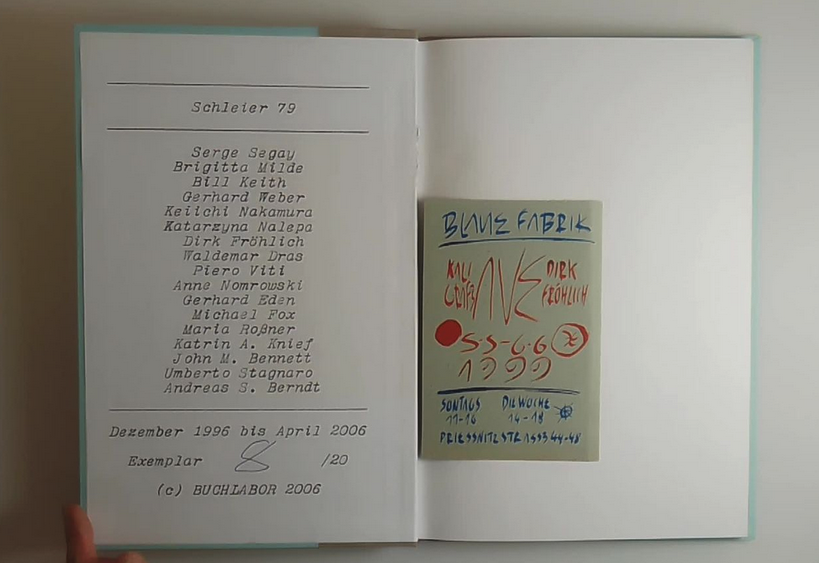 Schleier 79
Serge Segay
Brigitta Milde
Bill Keith
Gerhard Weber
Keiichi Nakamura
Katarzyna Nalepa
Dirk Fröhlich
Waldemar Dras
Piero Viti
Anne Nomrowski
Gerhard Eden
Michael Fox
Maria Roßner
Katrin A. Knief
John M. Bennett
Umberto Stagnaro
Andreas S. Berndt
Dezember 1996 bis April 2006
Exemplar 8 /20
(c) BUCHLABOR 2006
BLAUE FABRIK
KALI
DIRK
FRÖHLICH
5·5-6·6
1999
SONTAGS DIE WOCHE
11-16 14-18